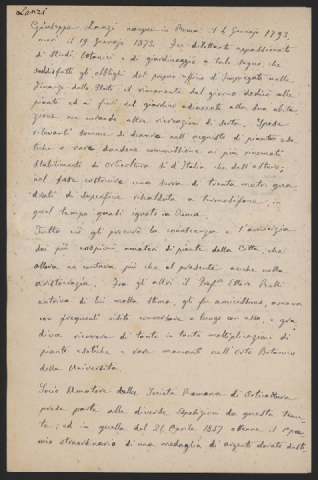 Lanzi
Giuseppe Lanzi nacque in Roma il 4 Gennajo 1793,
morì il 19 Gennajo 1873. Fu dilettante appassionato
di studi botanici e di giardinaggio a tale segno, che
soddisfatti gli obblighi del proprio ufficio d'impiegato nelle
finanze dello Stato il rimanente del giorno dedicò alle
piante ed ai fiori del giardino adiacente alla sua abita
zione non curando altre ricreazioni di sorta. Spese
rilevanti somme di danaro nell'acquisto di piante eso
tiche o rare dandone commissione ai più rinomati
stabilimenti di orticoltura sì d'Italia che dell'estero;
nel fare costruire una serra di trenta metri qua
drati di superficie riscaldata a termosifone, in
quel tempo quasi ignoto in Roma.
Tutto ciò gli procurò la conoscenza e l'amicizia
dei più cospicui amatori di piante della Città, che
allora ne contava più che al presente anche nella
aristocrazia. Fra gli altri il Prof. Ettore Rolli
nutriva di lui molta stima, gli fu amicissimo, amava
con frequenti visite conversare a lungo con esso, e gra
diva ricevere di tanto in tanto moltiplicazioni di
piante esotiche e rare mancanti nell'Orto Botanico
della Università.
Socio Amatore della Società Romana di Orticoltura
prese parte alle diverse esposizioni da questa tenu
te; ed in quella del 21 Aprile 1857 ottenne il 1° pre
mio straordinario di una medaglia di argento dorato